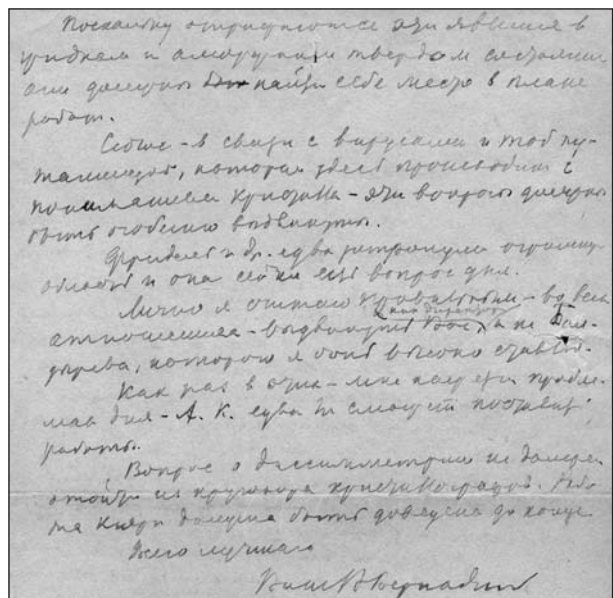 Поскольку открываются эти явления в
жидком и аморфном твердом состоянии
они должны найти себе место в плане
работ.
Сейчас - в связи с вирусами и той пу-
таницей, которая здесь происходит с
понятием кристалла - эти вопросы должны
быть особенно выдвинуты.
Фридель и др. едва затронули огромную
область и она сейчас есть вопрос дня.
Лично я считаю правильным - во всех
отношениях - выдвинуть Вас, а не Бол-
дырева, которого я очень высоко ставлю.
как директора
Как раз в этих - мне кажется пробле-
мах дня - А. К. едва ли сможет поставить
работы.
Вопрос о диссимметрии не должен
отойти из кругозора кристаллографов. Рабо-
та Кюри должна быть доведена до конца.
Всего лучшего
Ваш В. Вернадский